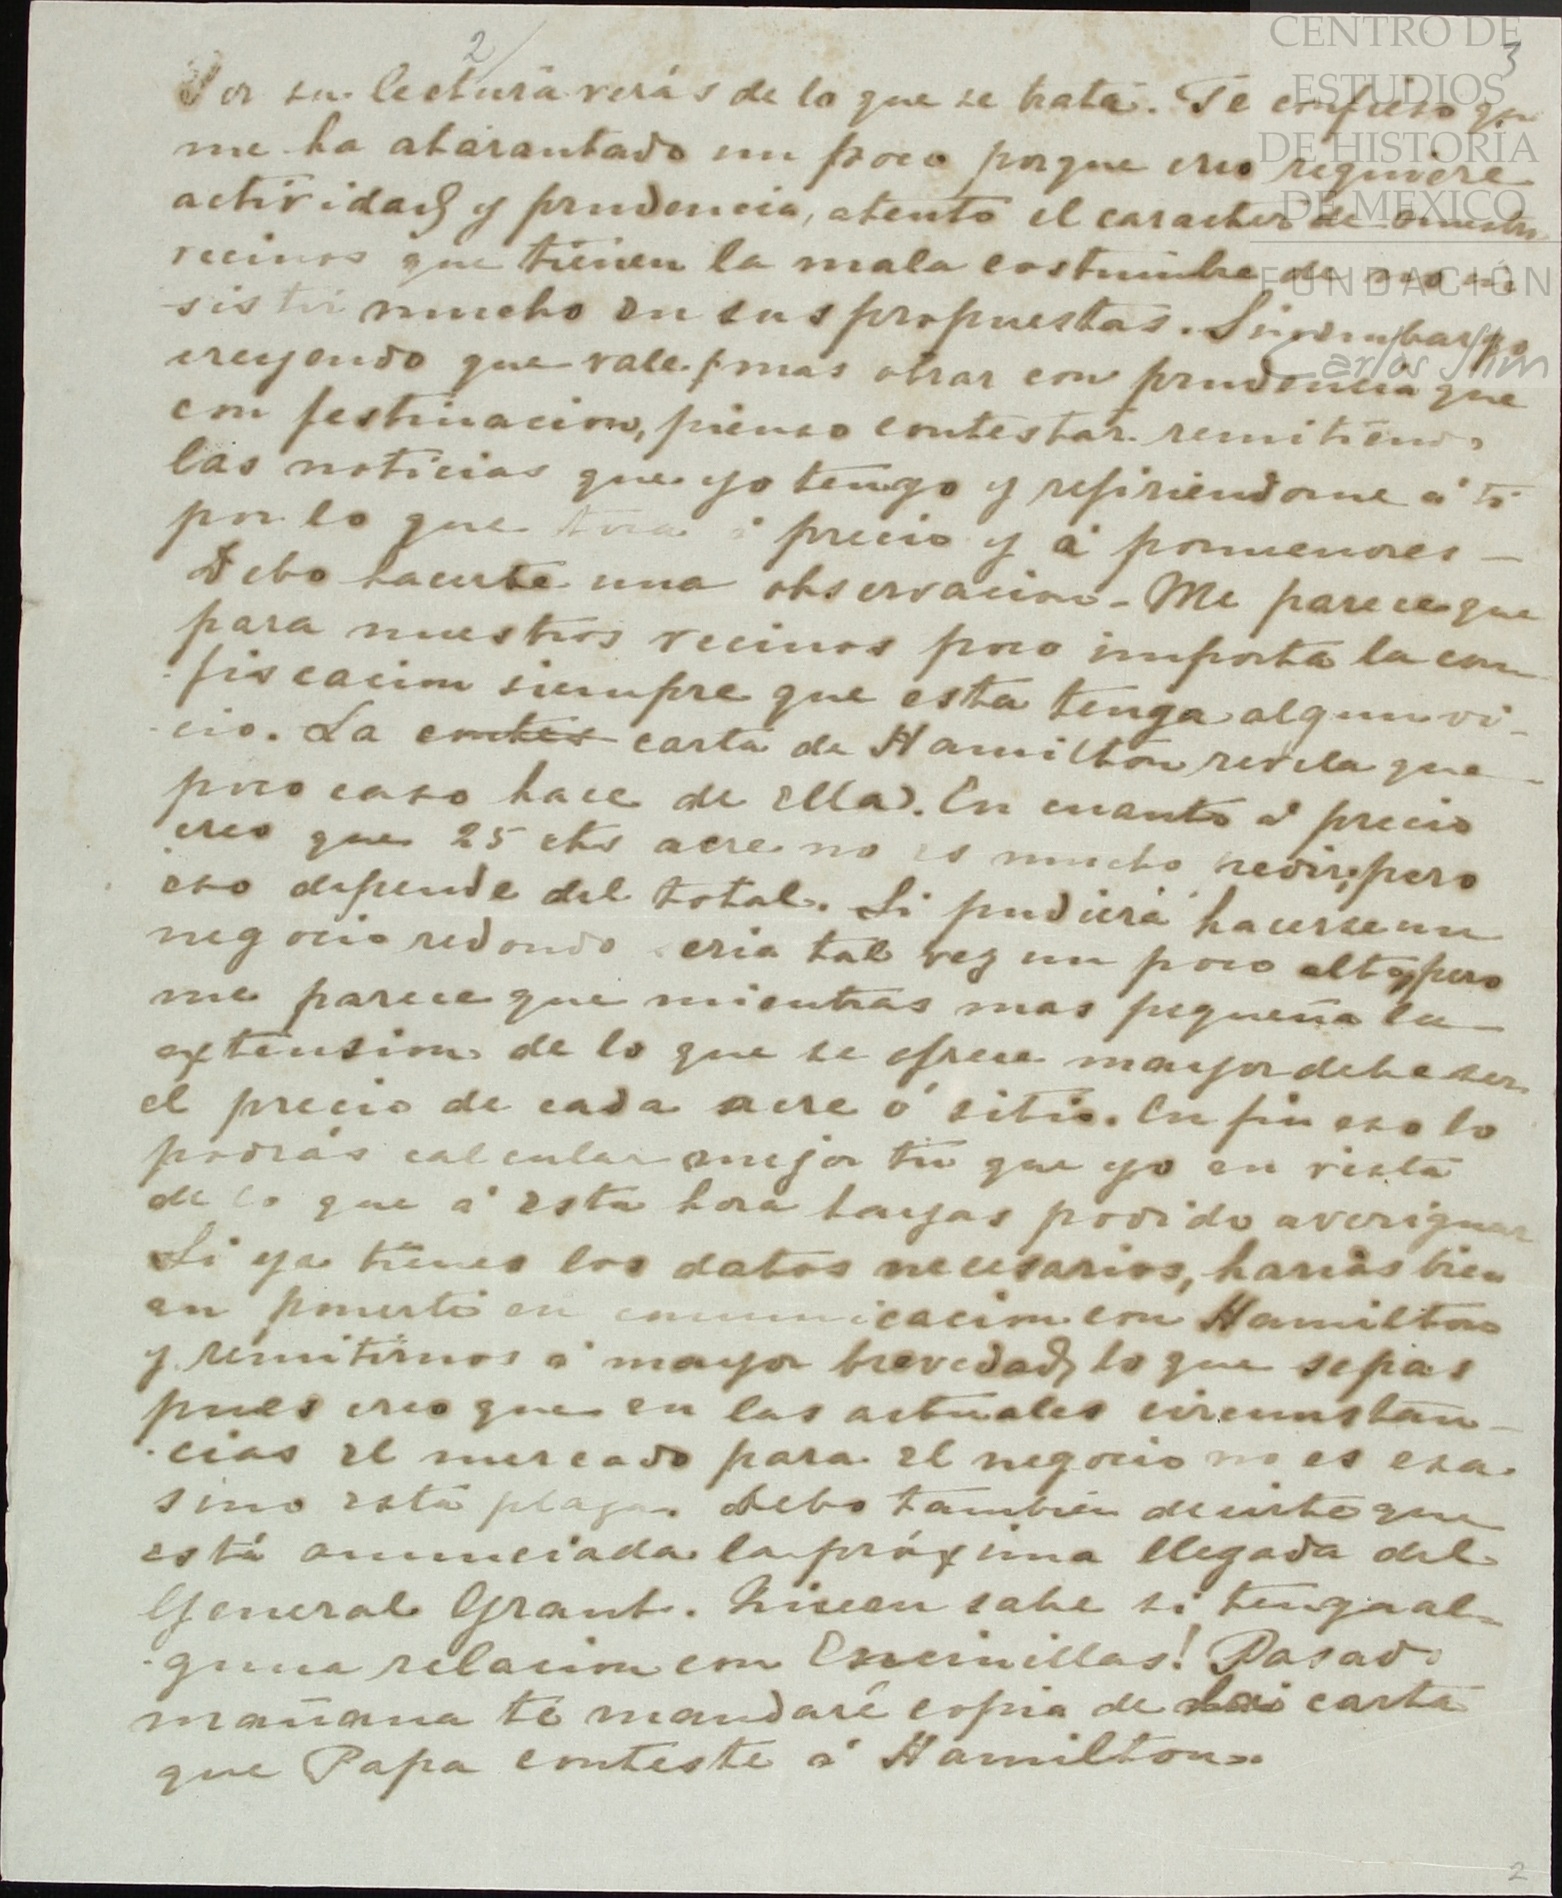 2
3
CENTRO DE
ESTUDIOS
DE HISTORIA
DE MEXICO
FUNDACIÓN
Carlos Slim
Por su lectura verás de lo que se trata. Te confieso que
me ha atarantado un poco porque creo requiere
actividad y prudencia, atento el caracter de nuestros
vecinos que tienen la mala costumbre de no in
sistir mucho en sus propuestas. Sin embargo
creyendo que vale mas obrar con prudencia que
con festinacion, pienso contestar remitiendo
las noticias que yo tengo y refiriendome á tí
por lo que toca á precio y á pormenores —
Debo hacerte una observacion — Me parece que
para nuestros vecinos poco importa la con
fiscacion siempre que esta tenga algun vi-
cio. La contes carta de Hamilton revela que
poco caso hace de ella. En cuanto á precio
creo que 25 cts acre no es mucho pedir; pero
eso depende del total. Si pudiera hacerse un
negocio redondo seria tal vez un poco alto, pero
me parece que mientras mas pequeña la
extension de lo que se ofrece mayor debe ser
el precio de cada acre ó sitio. En fin eso lo
podrás calcular mejor tú que yo en vista
de lo que á esta hora hayas podido averiguar
Si ya tienes los datos necesarios, harias bien
en ponerte en comunicacion con Hamilton
y remitirnos á mayor brevedad lo que sepas
pues creo que en las actuales circunstan-
cias el mercado para el negocio no es esa
sino esta plaza. Debo tambien decirte que
está anunciada la próxima llegada del
General Grant. Quien sabe si tenga al-
guna relacion con Encinillas! Pasado
mañana te mandaré copia de la carta
que Papa conteste á Hamilton.
2